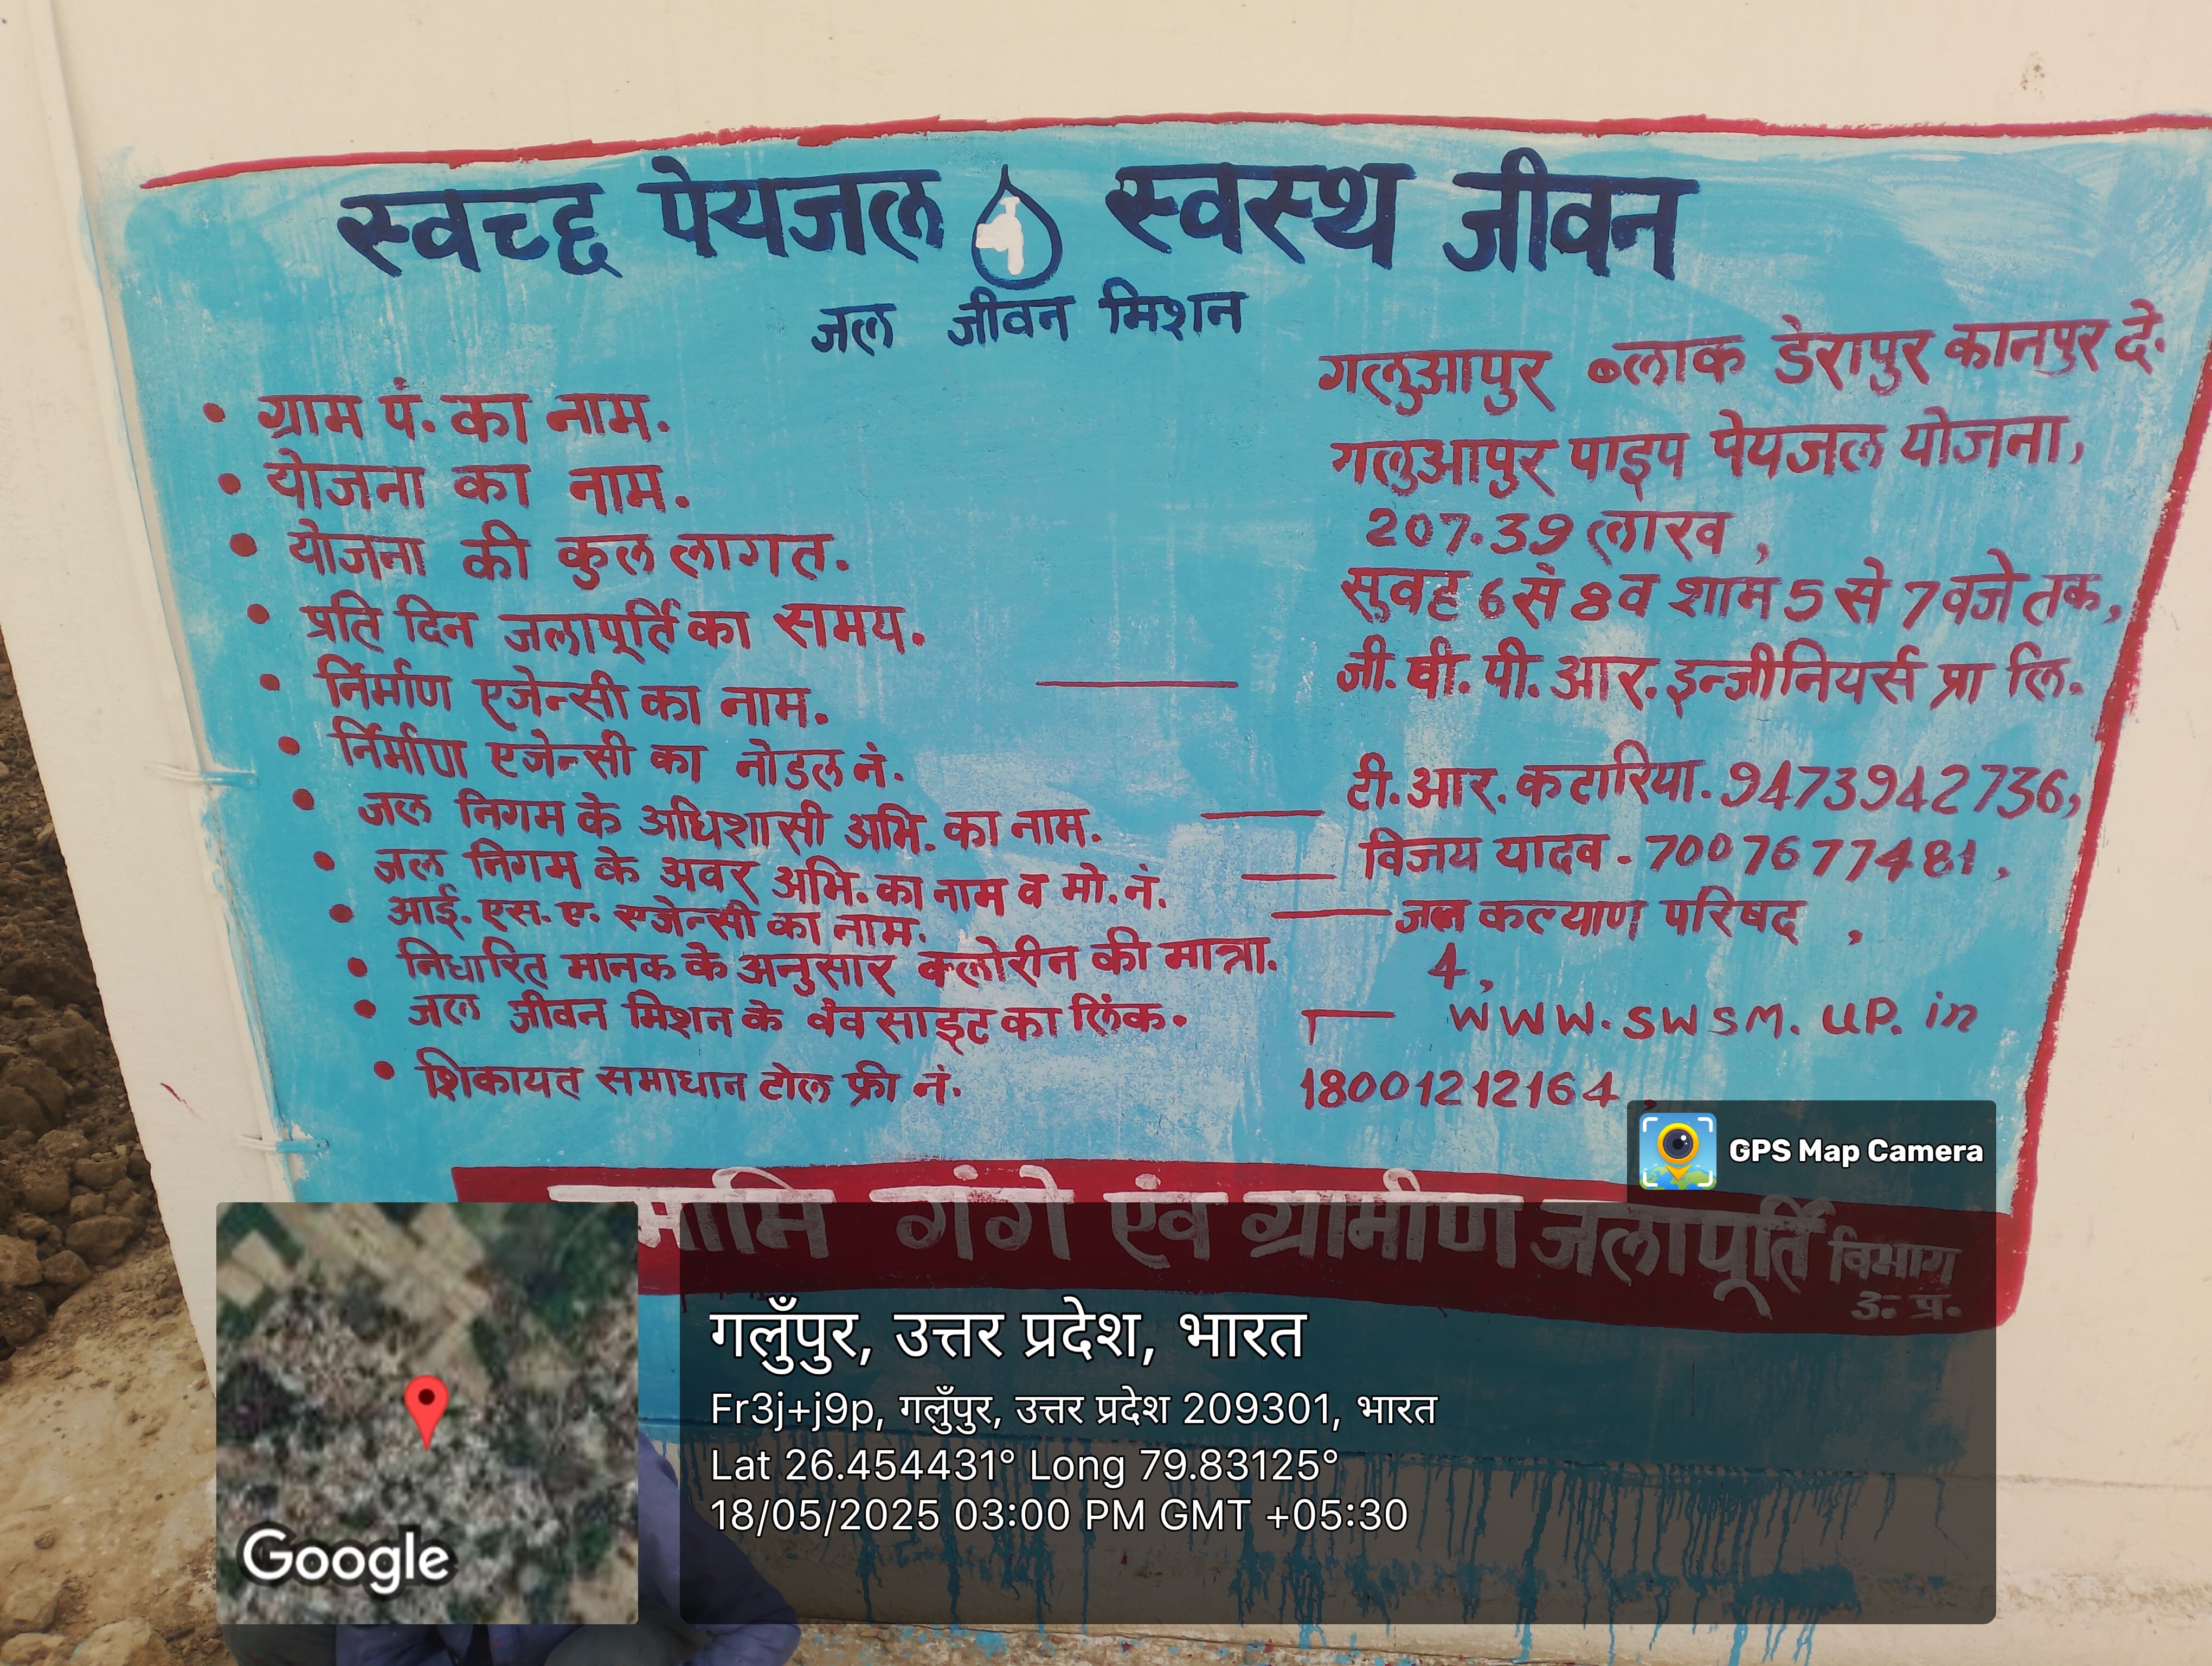 स्वच्छ पेयजल स्वस्थ जीवन
जल जीवन मिशन
• ग्राम पं. का नाम. गलुआपुर ब्लाक डेरापुर कानपुर दे.
• योजना का नाम. गलुआपुर पाइप पेयजल योजना,
• योजना की कुल लागत. 207.39 लाख,
• प्रति दिन जलापूर्ति का समय. सुवह 6 सं 8 व शाम 5 से 7 वजे तक,
• र्निमाण एजेन्सी का नाम. — जी. वी. पी. आर. इन्जीनियर्स प्रा लि.
• र्निमाण एजेन्सी का नोडल नं.
• जल निगम के अधिशासी अभि. का नाम. — टी. आर. कटारिया. 9473942736,
• जल निगम के अवर अभि. का नाम व मो. नं. — विजय यादव - 7007677481,
• आई. एस. ए. एजेन्सी का नाम. — जल कल्याण परिषद,
• निधारित मानक के अनुसार क्लोरीन की मात्रा. 4,
• जल जीवन मिशन के वेवसाइट का लिंक. — www.swsm.up.in
• शिकायत समाधान टोल फ्री नं. 18001212164,
GPS Map Camera
मामि गंगे एंव ग्रामीण जलापूर्ति विभाग
उ. प्र.
गलुँपुर, उत्तर प्रदेश, भारत
Fr3j+j9p, गलुँपुर, उत्तर प्रदेश 209301, भारत
Lat 26.454431° Long 79.83125°
18/05/2025 03:00 PM GMT +05:30
Google